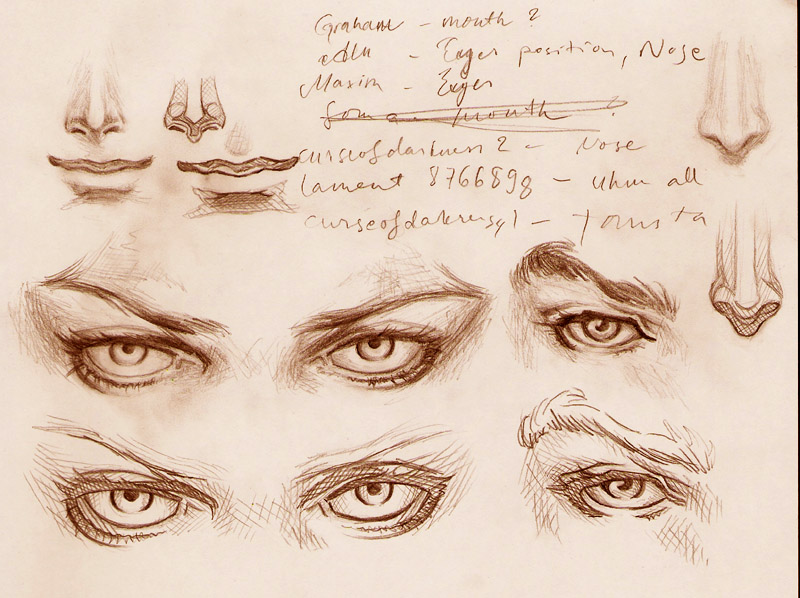 Graham - mouth ?
- Eyes position, Nose
Maxim - Eyes
mouth ?
curseofdarkness 2 - Nose
lament 8766898 - uhm all
curseofdarkness1 -